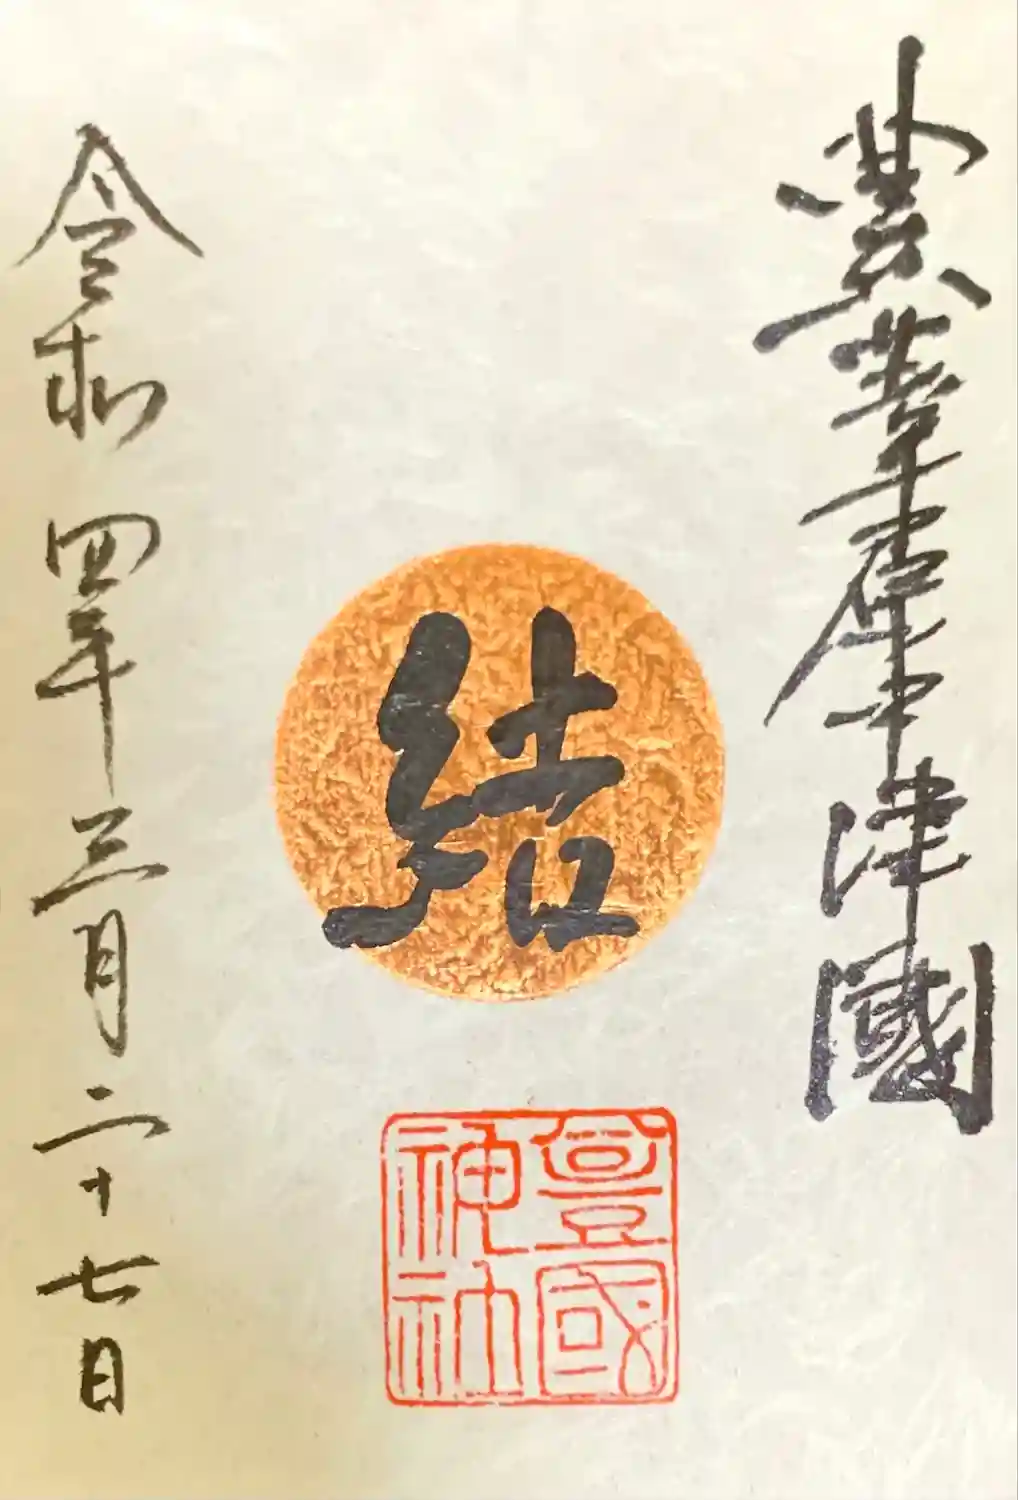 豊葦原中津國
結
令和四年三月二十七日
豊國
神社